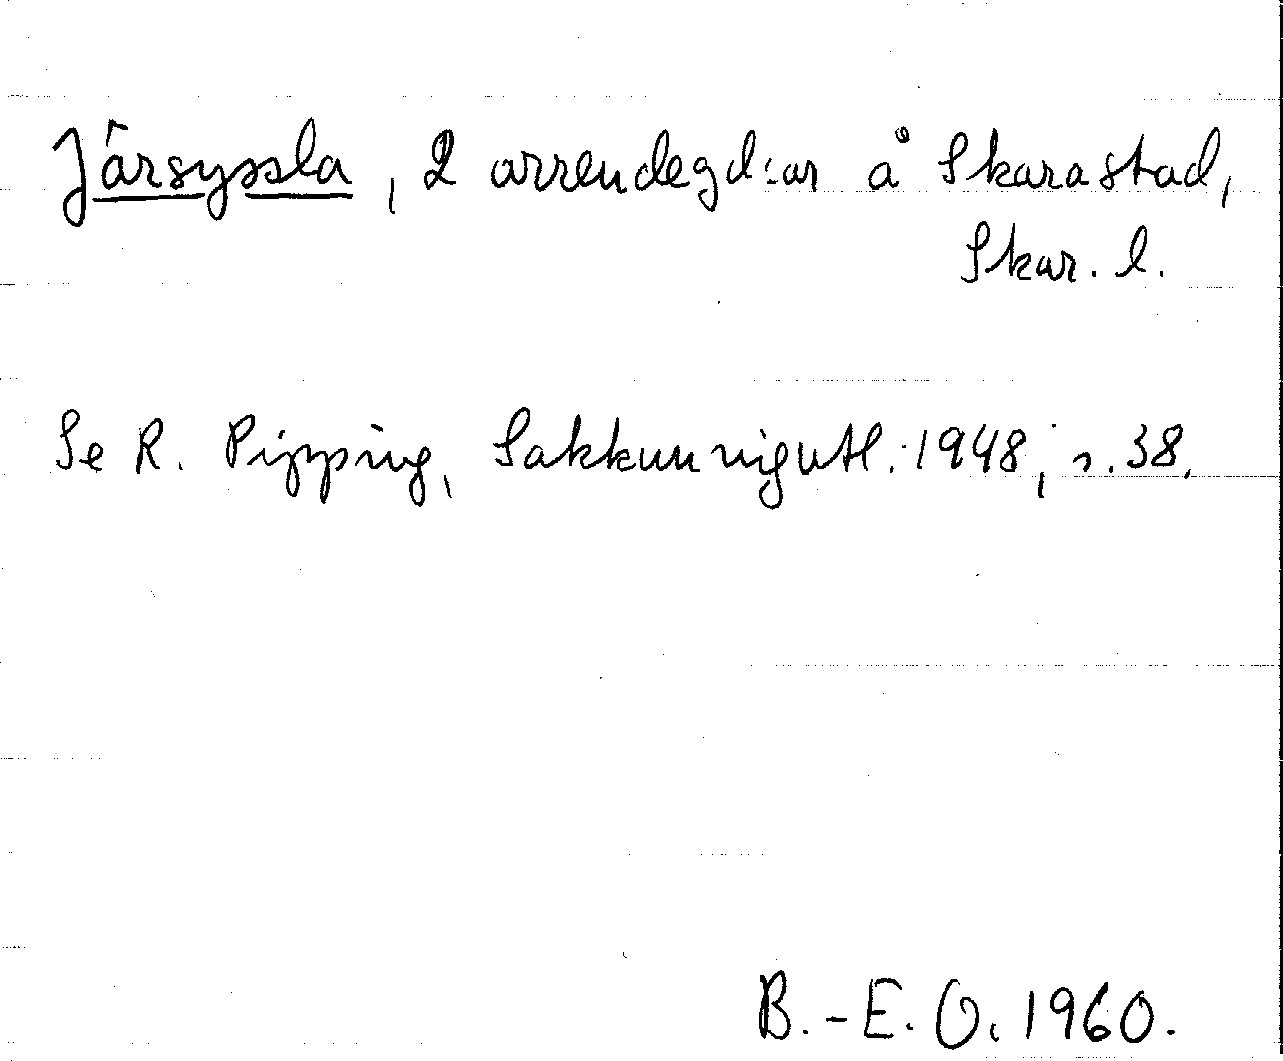 Jârsyssla, 2 arrendegd:ar å Skarastad,
Skar. l.
Se R. Pipping, Sakkunnigutl. 1948, s. 38.
B.-E. O. 1960.